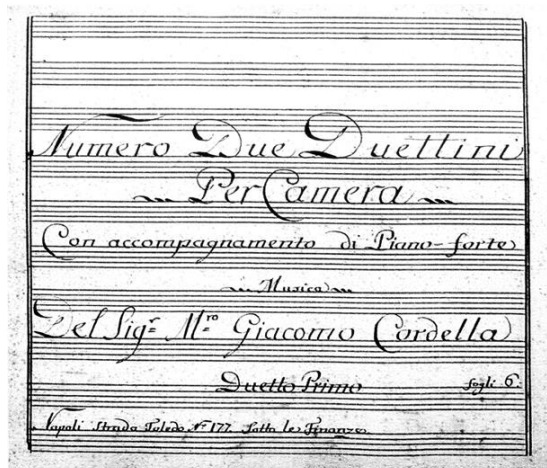 Numero Due Duettini
Per Camera
Con accompagnamento di Piano-forte
Musica
Del Sig.r M.ro Giacomo Cordella
Duetto Primo fogli 6.
Napoli Strada Toledo N.o 177 Sotto le Finanze